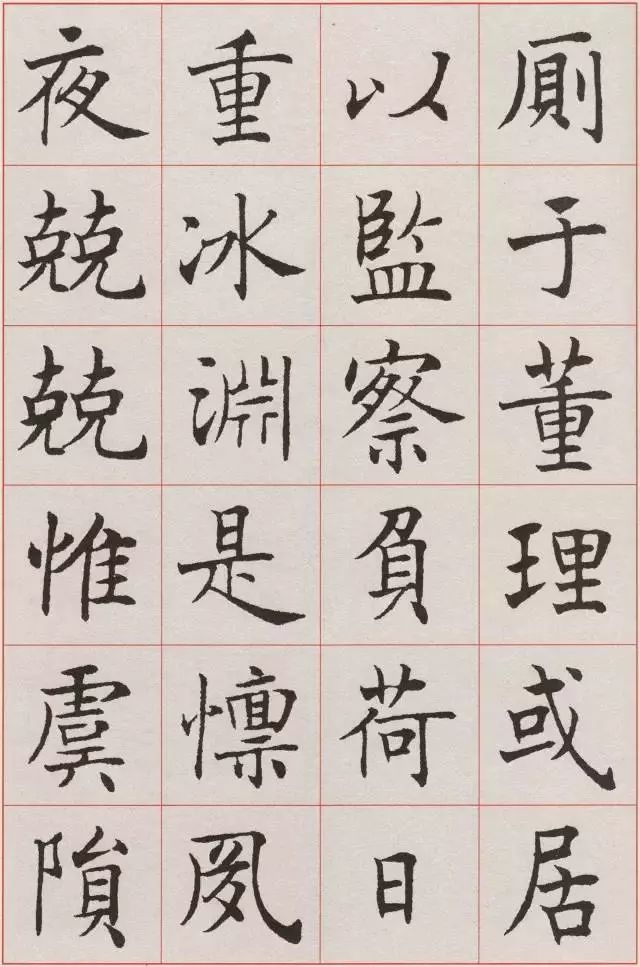 厠于董理或居
以監察負荷日
重冰淵是懍夙
夜兢兢惟虞隕